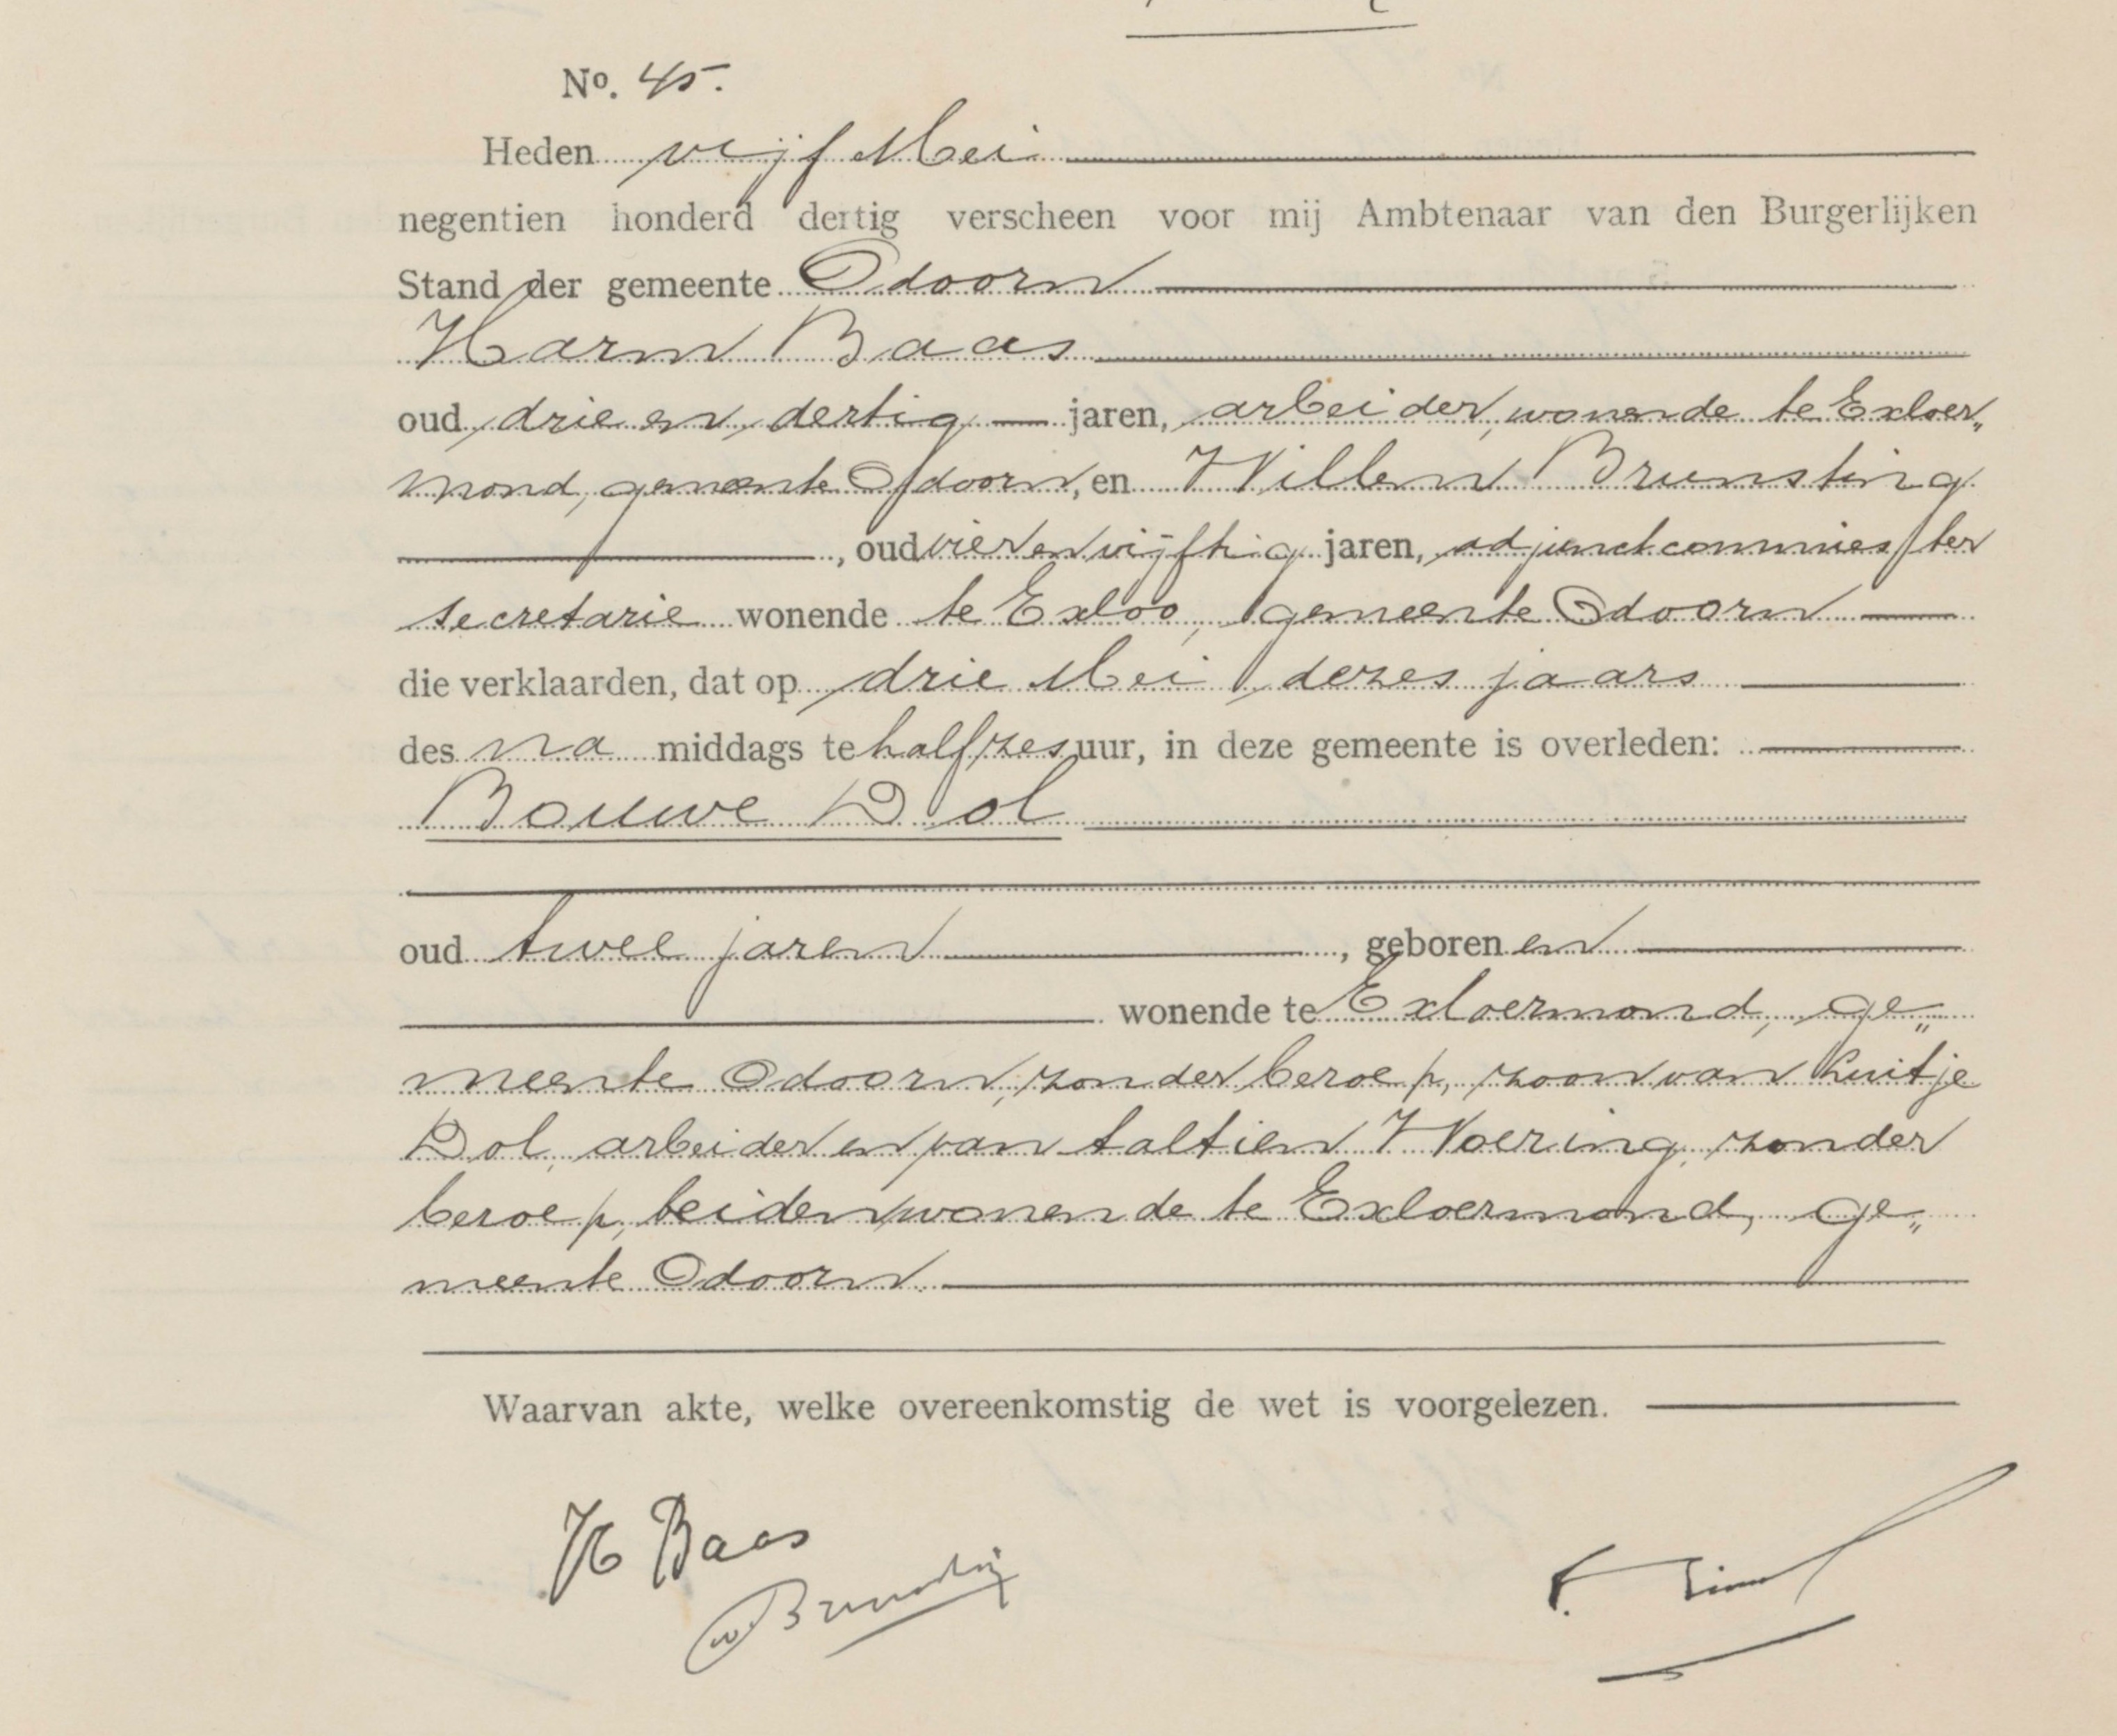 No. 45.
Heden vijf Mei
negentien honderd dertig verscheen voor mij Ambtenaar van den Burgerlijken
Stand der gemeente Odoorn
Harm Baas
oud drie en dertig jaren, arbeider, wonende te Exloer„
mond, gemeente Odoorn, en Willem Brunsting
, oud vier en vijftig jaren, adjunct commies ter
secretarie wonende te Exloo, gemeente Odoorn
die verklaarden, dat op drie Mei dezes jaars
des na middags te half zes uur, in deze gemeente is overleden:
Bouwe Dol
oud twee jaren, geboren en
wonende te Exloermond, ge„
meente Odoorn, zonder beroep, zoon van Luitje
Dol, arbeider en van Taltien Woering, zonder
beroep, beiden wonende te Exloermond, ge„
meente Odoorn
Waarvan akte, welke overeenkomstig de wet is voorgelezen.
H Baas
W Brunsting